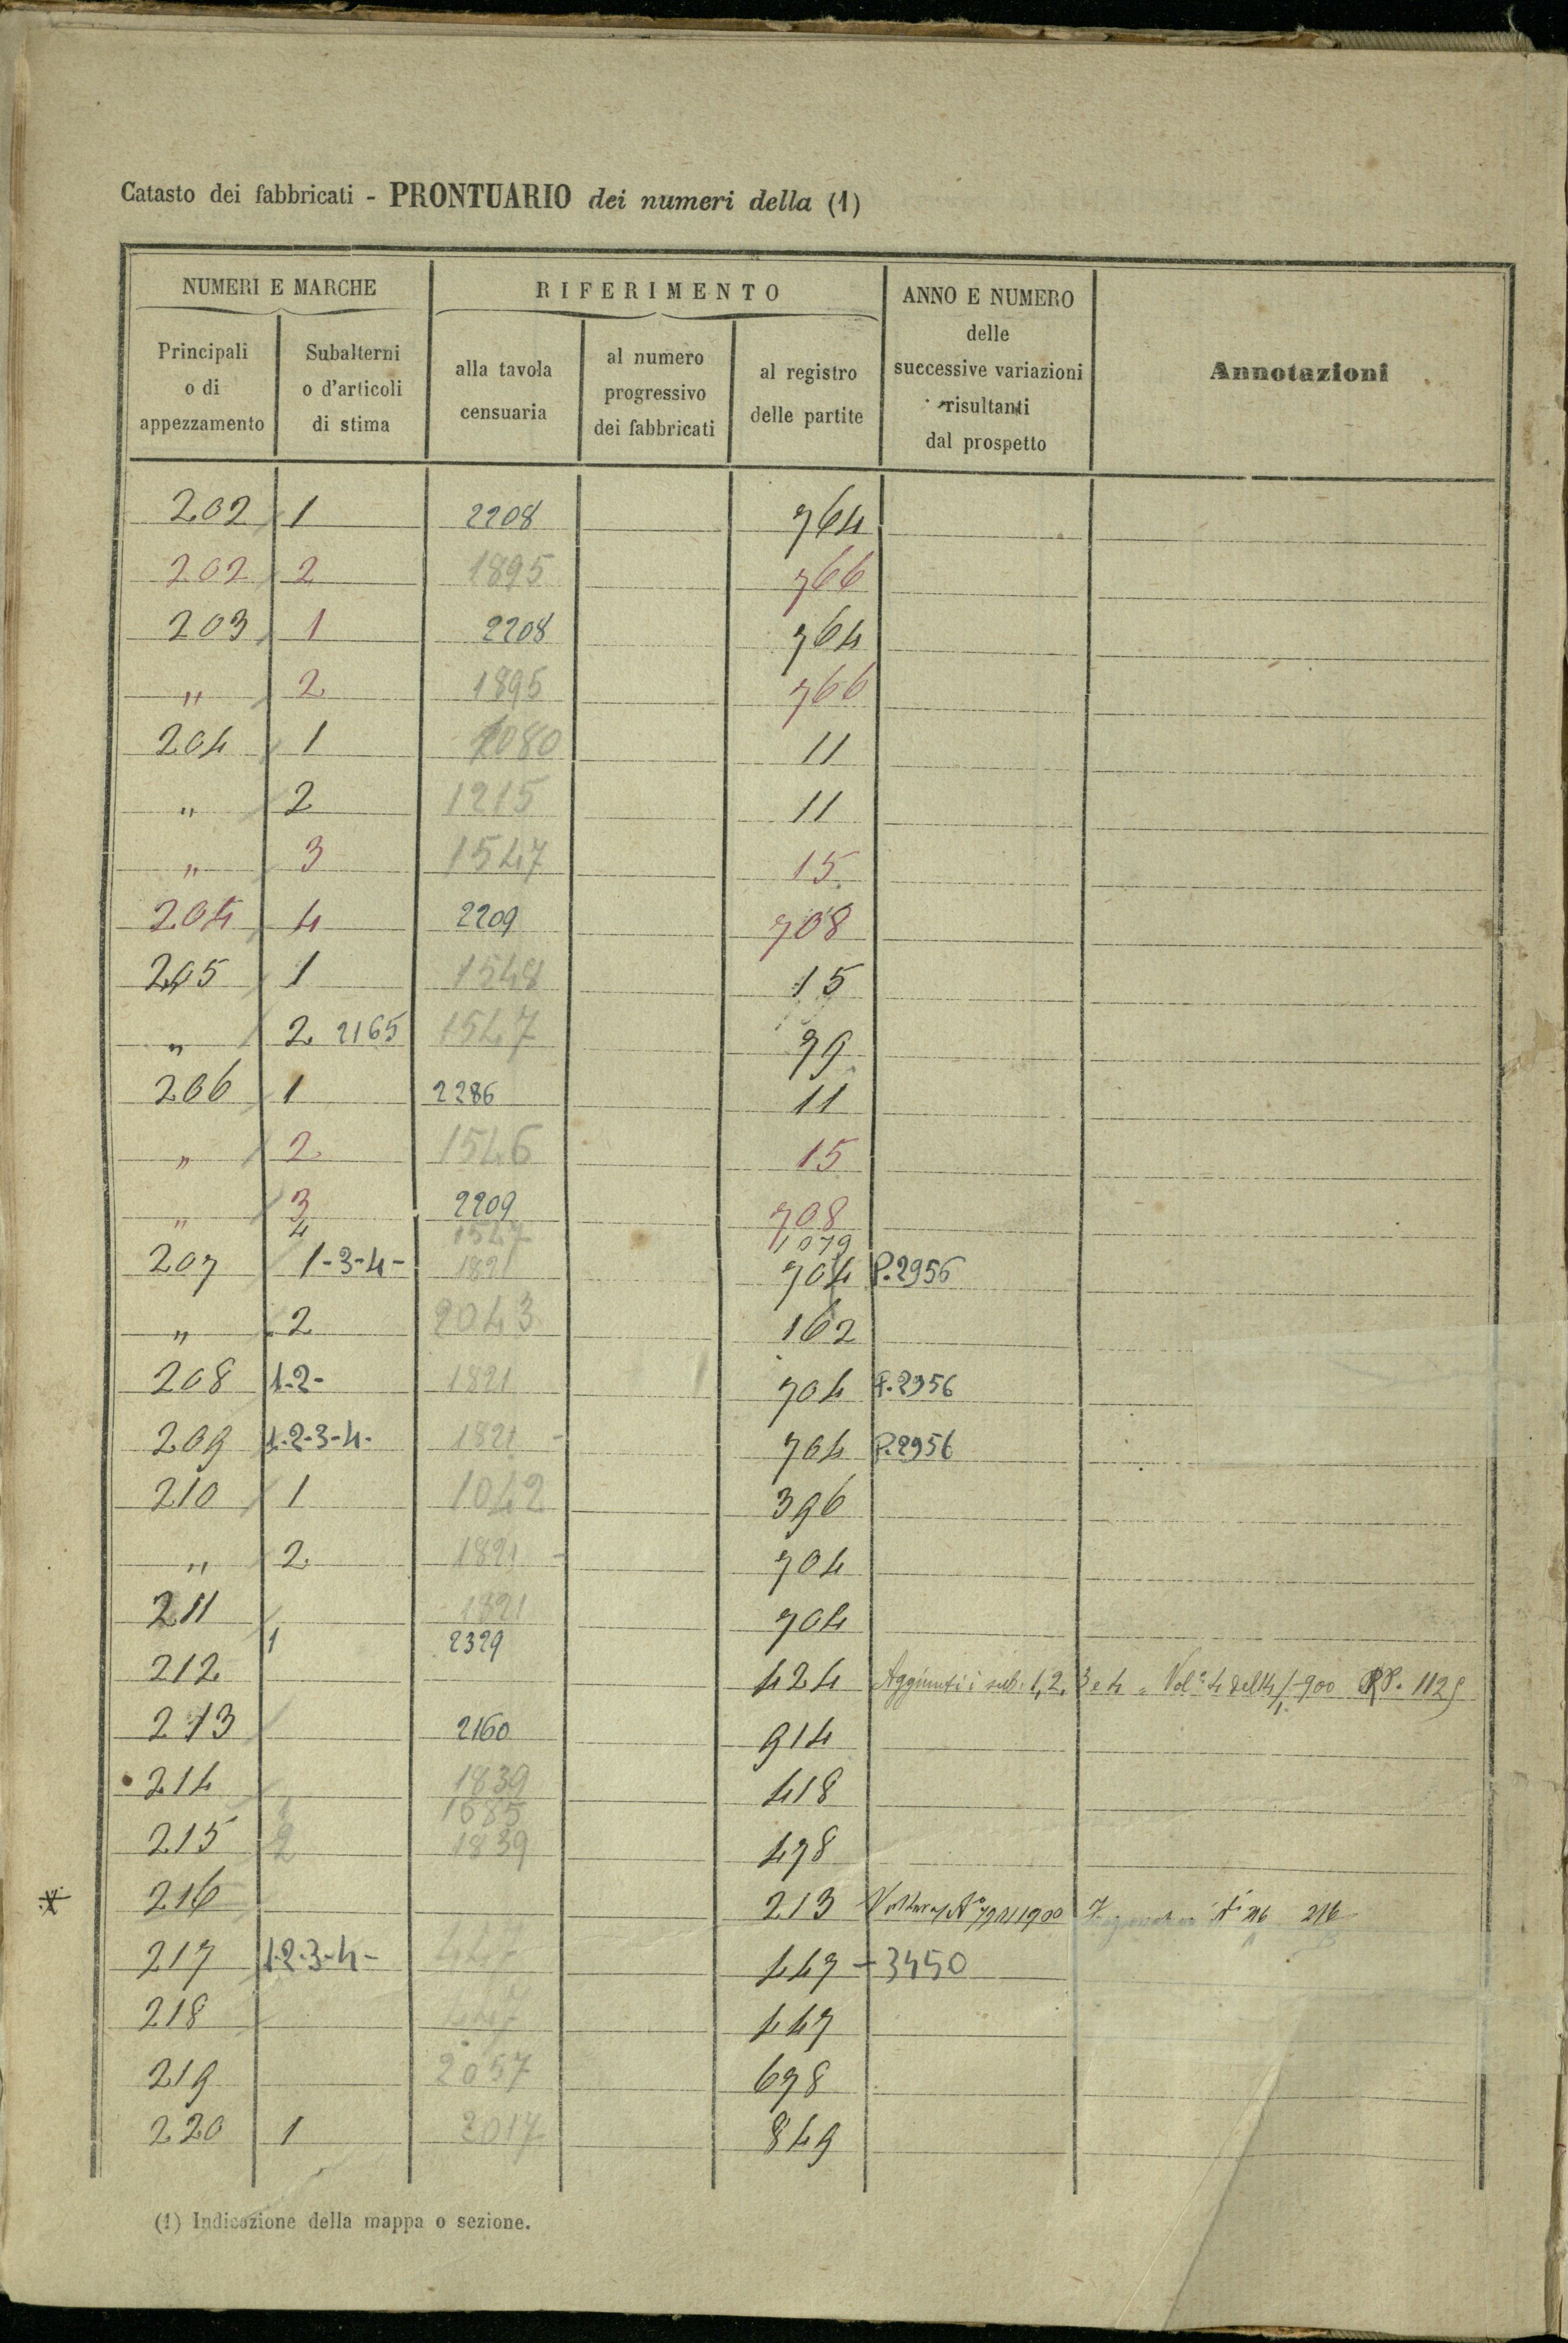 Catasto dei fabbricati - PRONTUARIO dei numeri della (1)
NUMERI E MARCHE RIFERIMENTO ANNO E NUMERO delle successive variazioni risultanti dal prospetto Annotazioni
Principali o di appezzamento Subalterni o d'articoli di stima alla tavola censuaria al numero progressivo dei fabbricati al registro delle partite
202 1 2208 764
202 2 1895 766
203 1 2208 764
" 2 1895 766
204 1 1080 11
" 2 1215 11
" 3 1547 15
204 4 2209 708
205 1 1548 15
" 2 2165 1547 79
206 1 2286 11
" 2 1546 15
" 3 2209 708
4 1547 1079
207 1-3-4- 1821 704 P.2956
" 2 2043 162
208 1-2- 1821 704 P.2956
209 1-2-3-4- 1821 - 704 P.2956
210 1 1042 396
" 2 1821 - 704
211 1821 704
1 2329
212 424 Aggiunti i sub. 1, 2, 3 e 4 Vol. 4 del 900 P. 1125
213 2160 914
214 1839 418
1 1685
215 2 1839 478
* 216 213 1900 N° 216 216
217 1-2-3-4- 447 447 - 3450
218 447 447
219 2057 678
220 1 2017 849
(1) Indicazione della mappa o sezione.